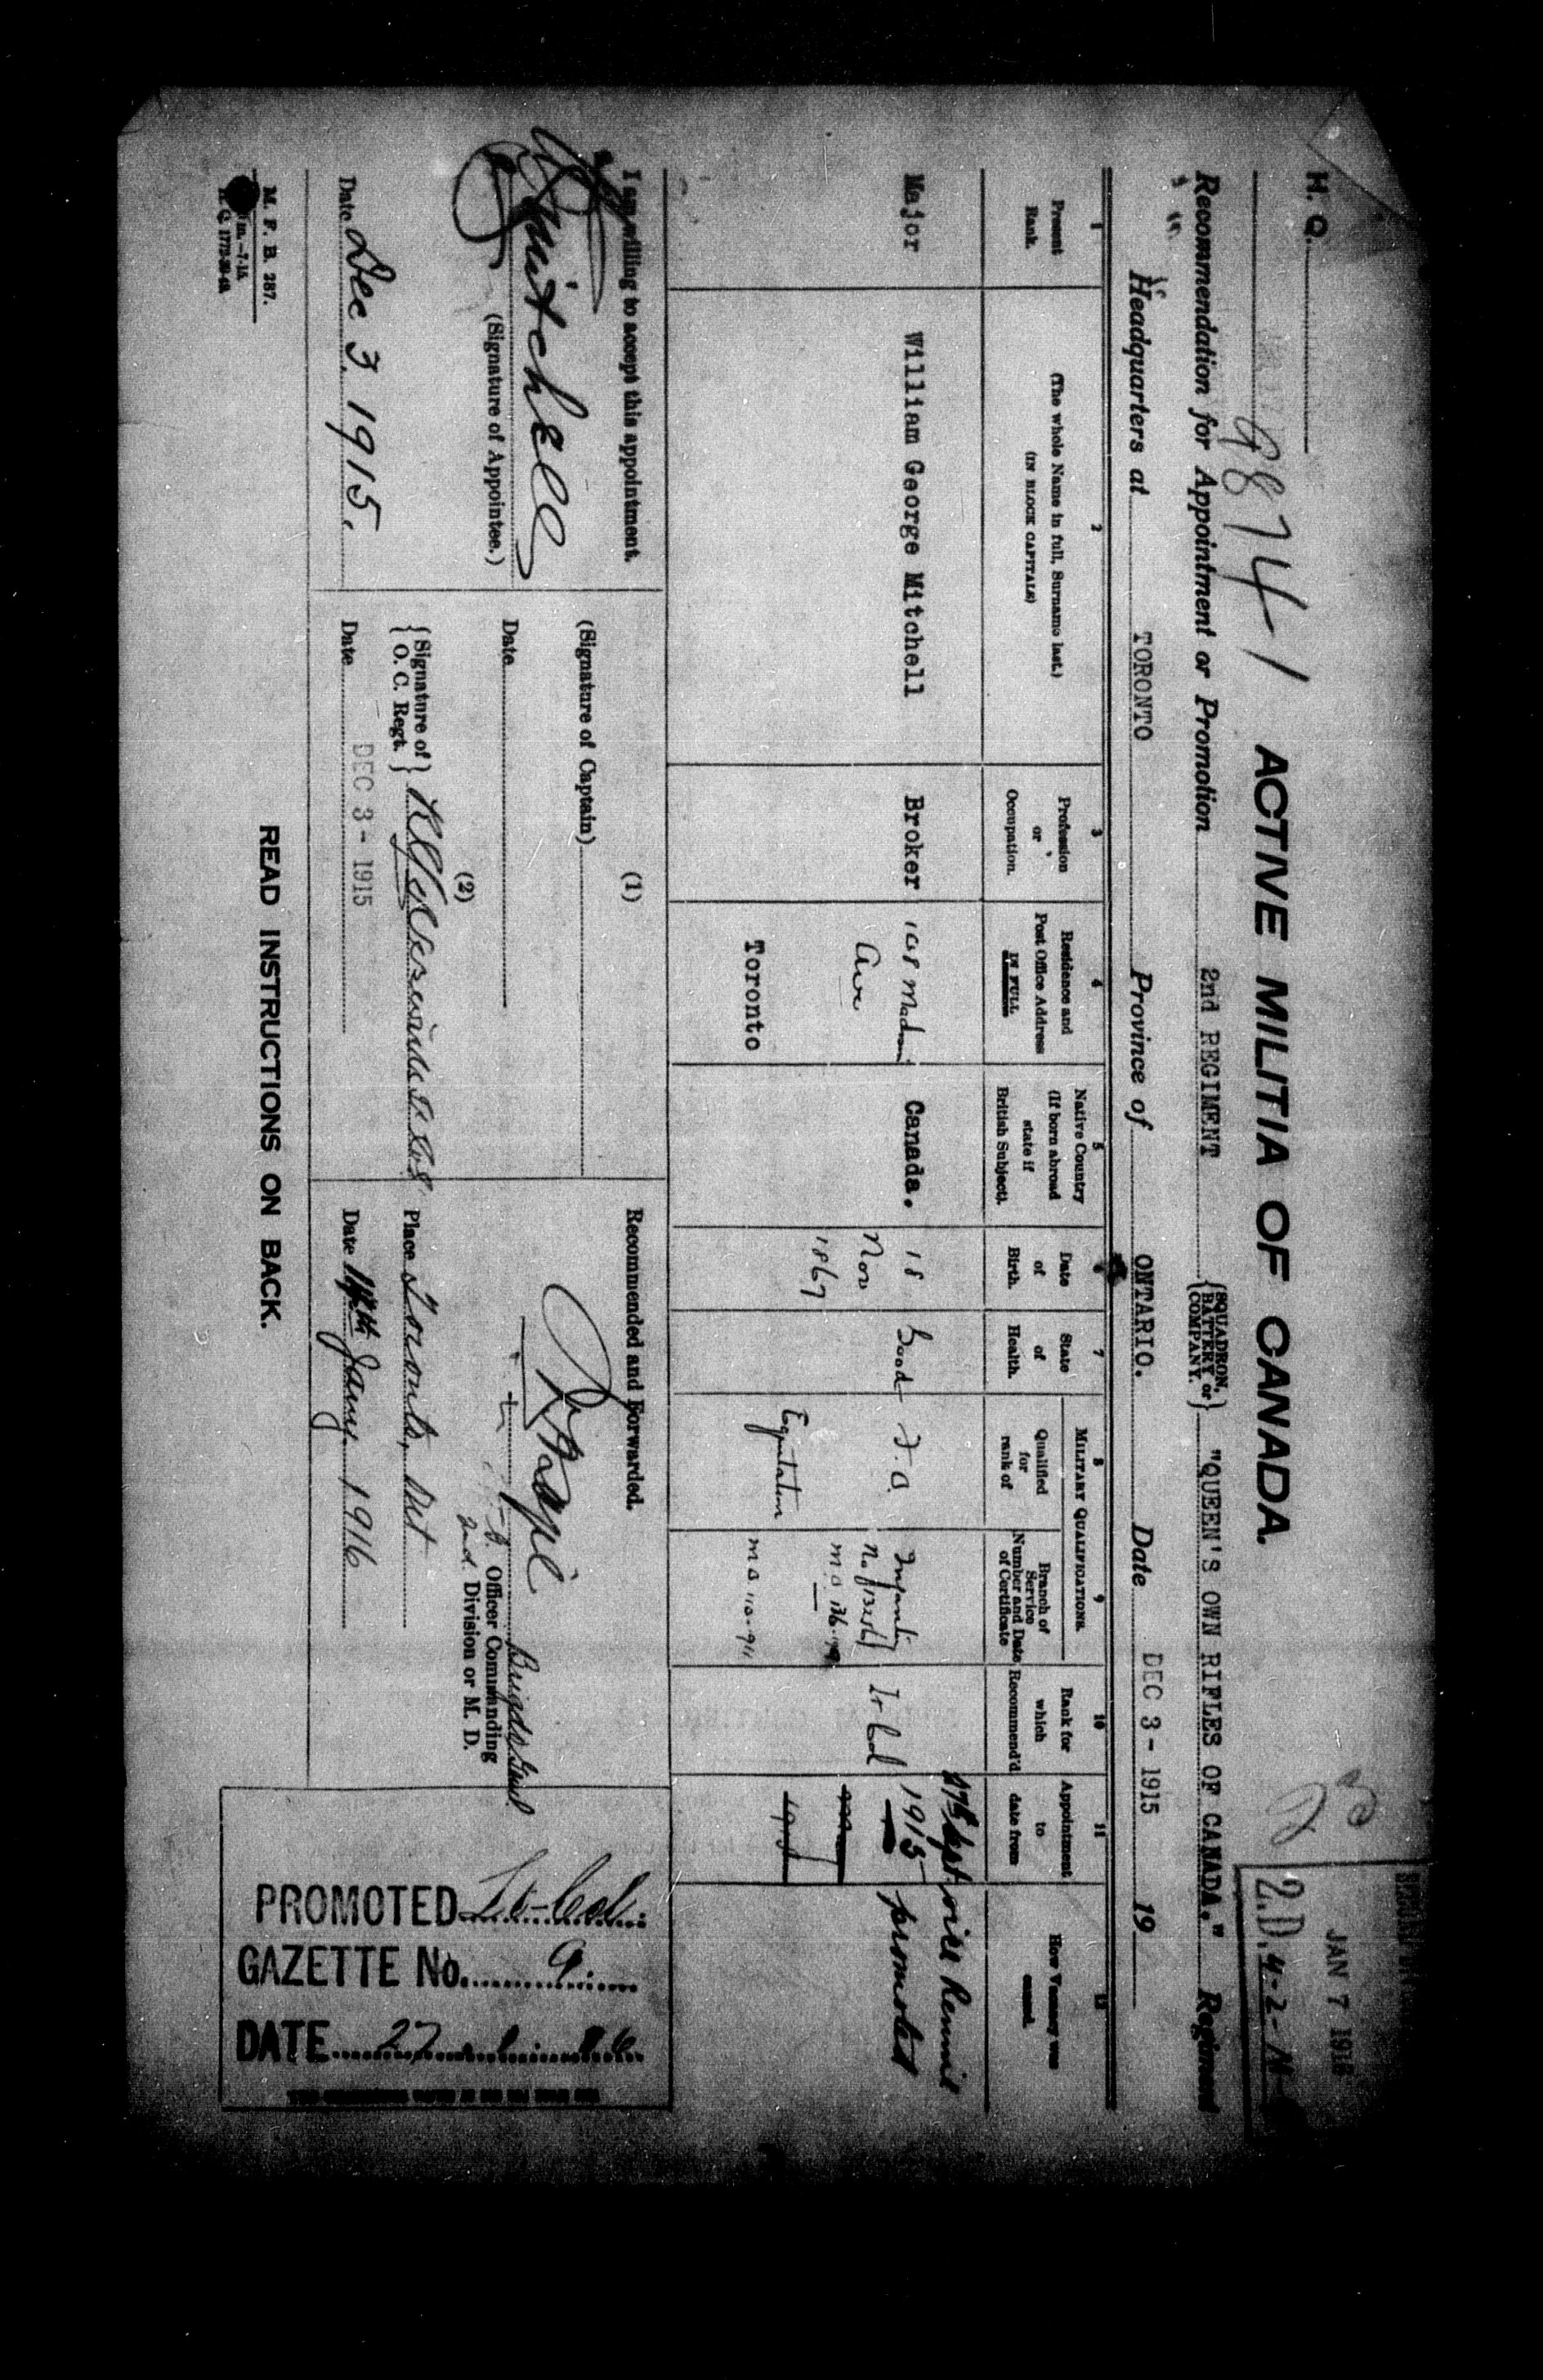 H. Q.
98741
ACTIVE MILITIA OF CANADA.
23
JAN 7 1916
2.D. 4-2-
Recommendation for Appointment or Promotion 2nd REGIMENT {SQUADRON, BATTERY or COMPANY.} "QUEEN'S OWN RIFLES OF CANADA." Regiment
Headquarters at TORONTO Province of ONTARIO. Date DEC 3 - 1915 19
1
Present
Rank.
2
(The whole Name in full, Surname last.)
(IN BLOCK CAPITALS)
3
Profession
or
Occupation.
4
Residence and
Post Office Address
IN FULL
5
Native Country
(If born abroad
state if
British Subject).
6
Date
of
Birth.
7
State
of
Health.
MILITARY QUALIFICATIONS.
8
Qualified
for
rank of
9
Branch of
Service
Number and Date
of Certificate
10
Rank for
which
Recommend'd
11
Appointment
to
date from
12
How Vacancy was
caused.
Major
William George Mitchell
Broker
108
Ave
Toronto
Canada.
18
Nov
1867
Good
F.O.
Equitation
Infantry
Lt Col
Sept.
1915
vice Rennie
promoted
I am willing to accept this appointment.
Mitchell
(Signature of Appointee.)
Date Dec 3. 1915.
(1)
(Signature of Captain)
Date
(2)
{Signature of
O. C. Regt.}
Date DEC 3 - 1915
Recommended and Forwarded.
Officer Commanding
2nd Division or M. D.
Place Toronto, Ont
Date 14th Jany. 1916
PROMOTED Lt-Col.
GAZETTE No. 9.
DATE 27
M. F. B. 287.
READ INSTRUCTIONS ON BACK.